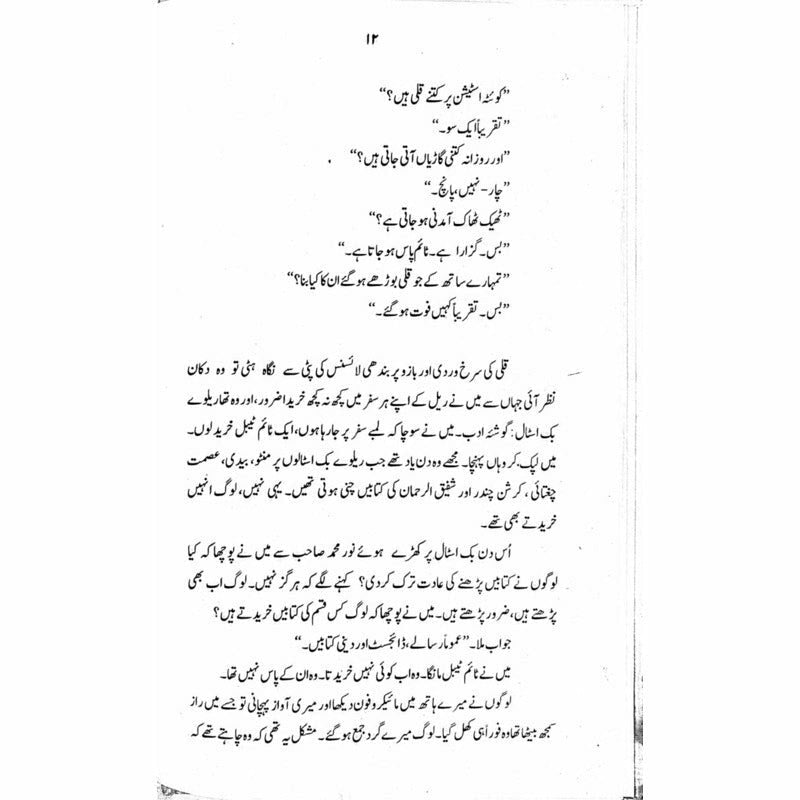 ۱۲
”کوئٹہ اسٹیشن پر کتنے قلی ہیں؟“
”تقریباً ایک سو۔“
”اور روزانہ کتنی گاڑیاں آتی جاتی ہیں؟“
”چار - نہیں، پانچ۔“
”ٹھیک ٹھاک آمدنی ہو جاتی ہے؟“
”بس۔ گزارا ہے۔ ٹائم پاس ہو جاتا ہے۔“
”تمہارے ساتھ کے جو قلی بوڑھے ہو گئے ان کا کیا بنا؟“
”بس۔ تقریباً کہیں فوت ہو گئے۔“
قلی کی سرخ وردی اور بازو پر بندھی لائسنس کی پٹی سے نگاہ ہٹی تو وہ دکان
نظر آئی جہاں سے میں نے ریل کے اپنے ہر سفر میں کچھ نہ کچھ خریدا ضرور، اور وہ تھا ریلوے
بک اسٹال: گوشۂ ادب۔ میں نے سوچا کہ لمبے سفر پر جا رہا ہوں، ایک ٹائم ٹیبل خرید لوں۔
میں لپک کر وہاں پہنچا۔ مجھے وہ دن یاد تھے جب ریلوے بک اسٹالوں پر منٹو، بیدی، عصمت
چغتائی، کرشن چندر اور شفیق الرحمان کی کتابیں چنی ہوتی تھیں۔ یہی نہیں، لوگ انہیں
خریدتے بھی تھے۔
اُس دن بک اسٹال پر کھڑے ہوئے نور محمد صاحب سے میں نے پوچھا کہ کیا
لوگوں نے کتابیں پڑھنے کی عادت ترک کر دی؟ کہنے لگے کہ ہرگز نہیں۔ لوگ اب بھی
پڑھتے ہیں، ضرور پڑھتے ہیں۔ میں نے پوچھا کہ لوگ کس قسم کی کتابیں خریدتے ہیں؟
جواب ملا۔ ”عموماً رسالے، ڈائجسٹ اور دینی کتابیں۔“
میں نے ٹائم ٹیبل مانگا۔ وہ اب کوئی نہیں خریدتا۔ وہ ان کے پاس نہیں تھا۔
لوگوں نے میرے ہاتھ میں مائیکروفون دیکھا اور میری آواز پہچانی تو جسے میں راز
سمجھ بیٹھا تھا وہ فوراً ہی کھل گیا۔ لوگ میرے گرد جمع ہو گئے۔ مشکل یہ تھی کہ وہ چاہتے تھے کہ